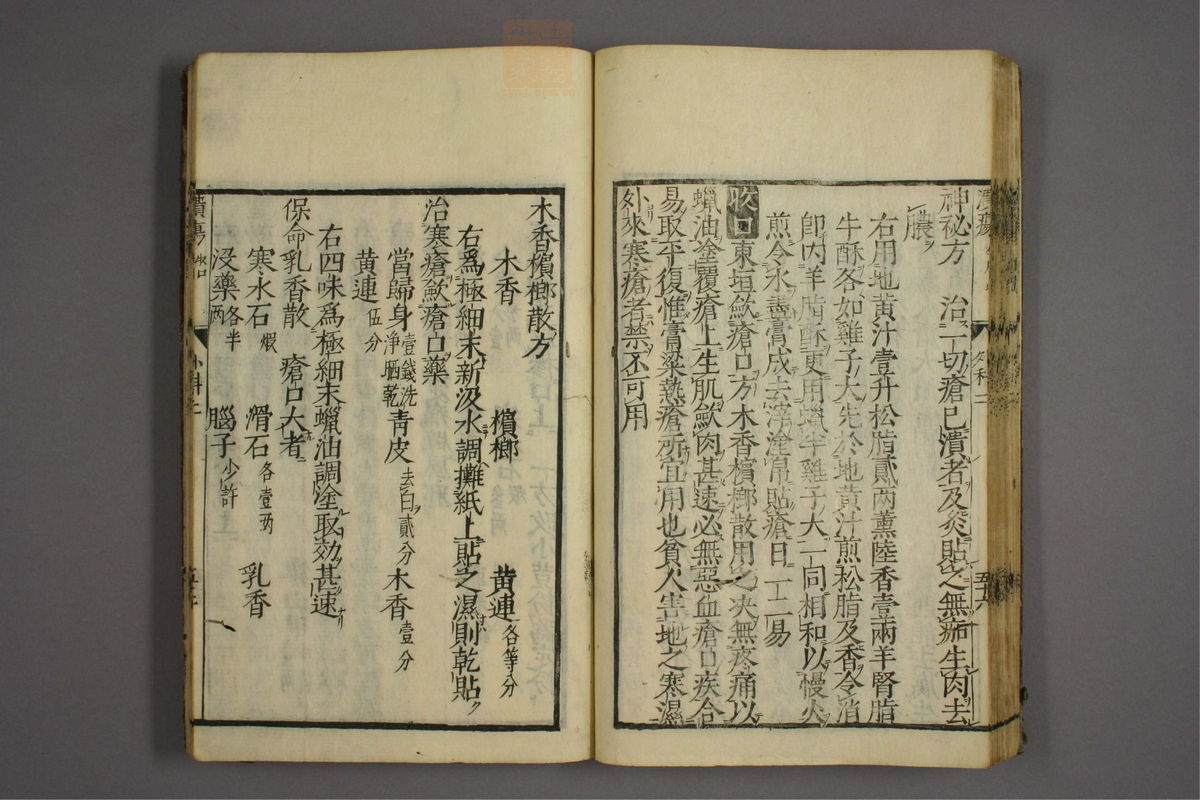 神秘方　治一切瘡已潰者及炙貼之無痂生肉去
膿
右用地黃汁壹升松脂貳兩薰陸香壹兩羊腎脂
牛酥各如雞子大先於地黃汁煎松脂及香令消
卽內羊脂酥更用蠟半雞子大一同相和以慢火
煎令水盡膏成去滓塗帛貼瘡日一二易
收口　東垣歛瘡口方木香檳榔散用之决無疼痛以
蠟油塗覆瘡上生肌歛肉甚速必無惡血瘡口疾合
易取平復惟膏粱熱瘡所宜用也貧人害地之寒濕
外來寒瘡者禁不可用
木香檳榔散方
木香　檳榔　黃連各等分
右爲極細末新汲水調攤紙上貼之濕則乾貼
治寒瘡歛瘡口藥
當歸身壹錢洗淨晒乾　青皮去白貳分　木香壹分
黃連伍分
右四味爲極細末蠟油調塗取効甚速
保命乳香散　瘡口大者
寒水石煅　滑石各壹兩　乳香
沒藥各半兩　腦子少許
潰瘍